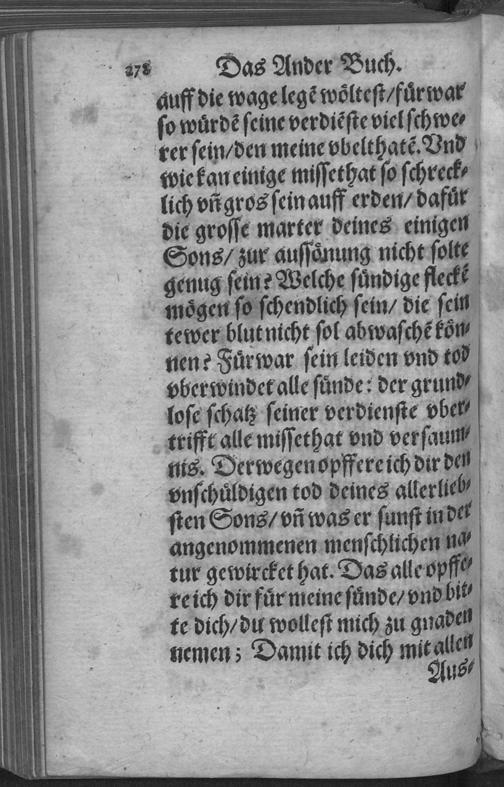 278 Das Ander Buch.
auff die wage legẽ wöltest/fürwar
so würdẽ seine verdiẽste viel schwe-
rer sein/den meine vbelthatẽ. Vnd
wie kan einige missethat so schreck-
lich vñ gros sein auff erden/dafür
die grosse marter deines einigen
Sons/ zur aussönung nicht solte
genug sein? Welche sündige fleckẽ
mögen so schendlich sein/ die sein
tewer blut nicht sol abwaschẽ kön-
nen? Fürwar sein leiden vnd tod
vberwindet alle sünde: der grund-
lose schatz seiner verdienste vber-
trifft alle missethat vnd versaum-
nis. Derwegen opffere ich dir den
vnschüldigen tod deines allerlieb-
sten Sons/ vñ was er sunst in der
angenommenen menschlichen na-
tur gewircket hat. Das alle opffe-
re ich dir für meine sünde/ vnd bit-
te dich/du wollest mich zu gnaden
nemen; Damit ich dich mit allen
Aus-